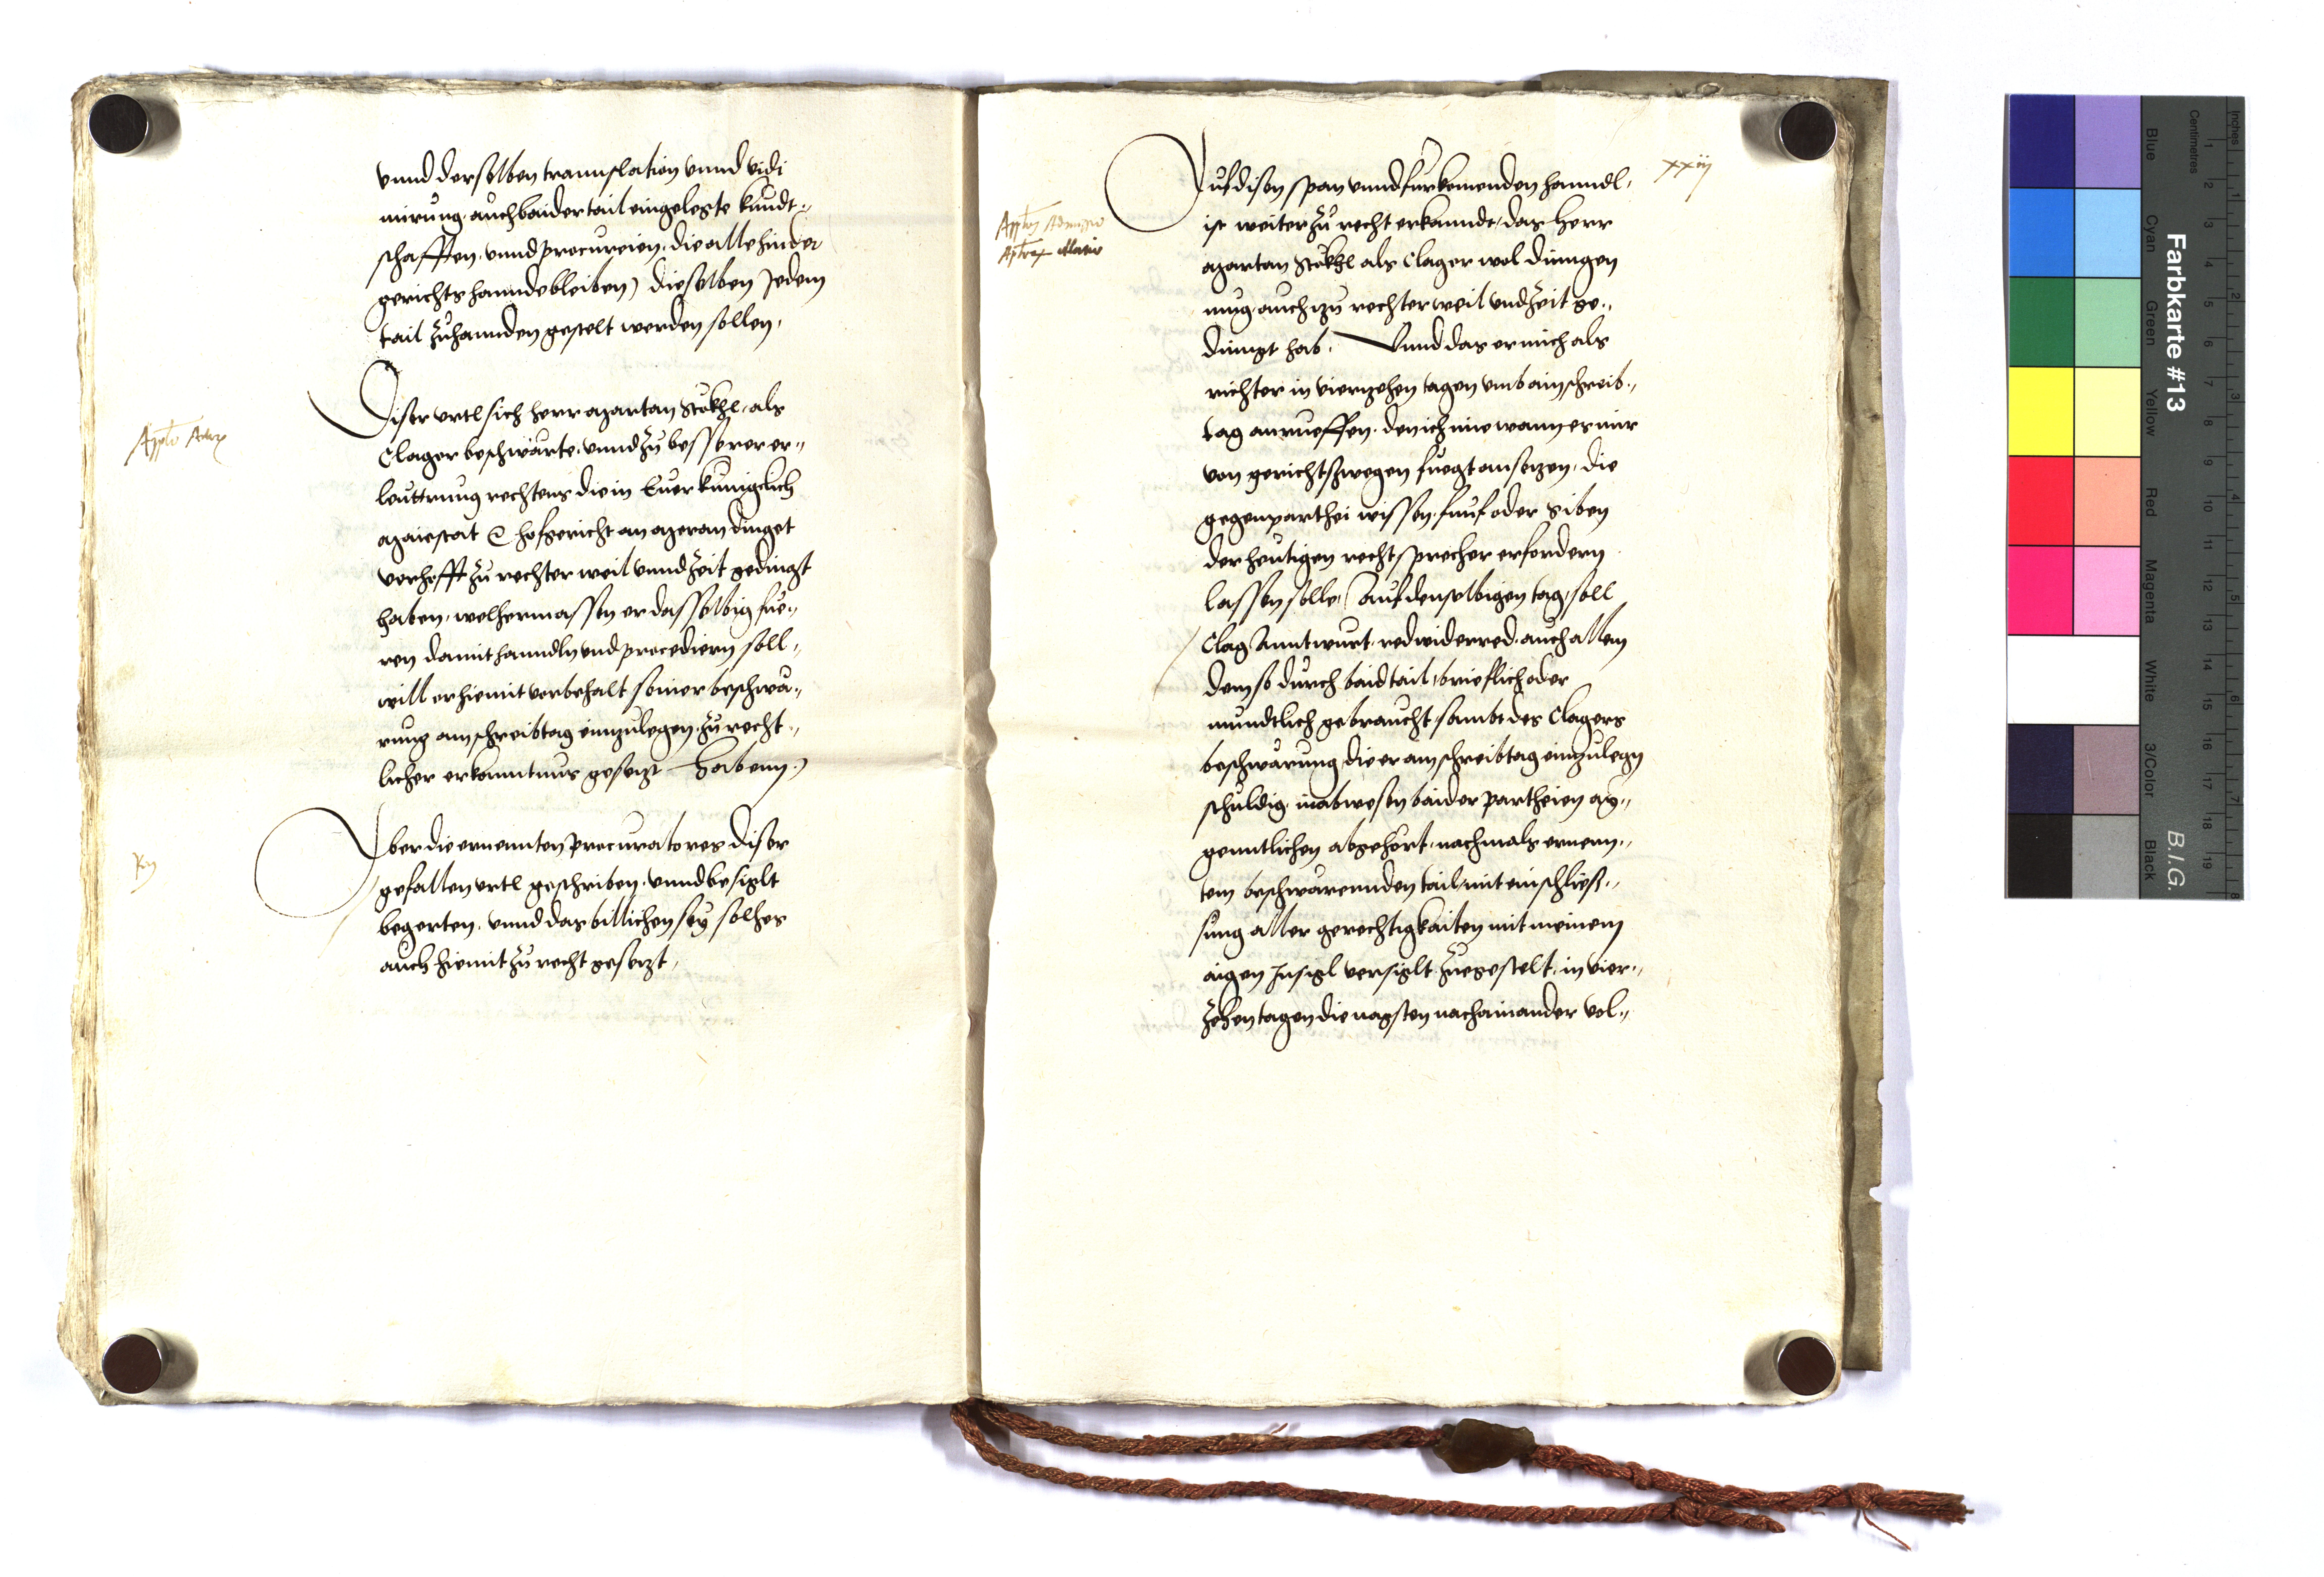 vnnd derselben trannslation vnnd vidi
mirung, auch baider tail eingelegte kundt„
schafften, vnnd procureien, die alle hinder
gerichts hannde bleiben) dieselben Jedem
tail zuhannden gestelt werden sollen,
Diser vrtl sich herr Martan Stökhl, als
Clager beschwärte, vnnd zu besserer er„
leuttrung rechtens die in Euer kuniglich
Maiestat hofgericht an Meran dinget
verhofft zu rechter weil vnnd zeit gedingt
haben, welhermassen er dasselbig fue„
ren damit hanndln vnd procediern soll„
will er hiemit vorbehalt seiner beschwä„
rung am schreibtag einzulegen, zu recht„
licher erkanntnus gesetzt habenn)
Iber die ernennten procuratores diser
gefallen vrtl geschriben, vnnd besiglt
begerten, vnnd das billichen sey solhes
auch hiemit zu recht gesetzt,
xxiij
Auf disen span vnnd furkomenden hanndl,
ist weiter zu recht erkannde, das Herr
Martan Stökhl als Clager wol dinngen
mug, auch zu rechter weil vnd zeit ge„
dinngt hab, Vnnd das er mich als
richter in vierzehen tagen vmb ain schreib„
tag anrueffen, den ich ime wann es mir
von gerichtszwegen fuegt ansetzen, die
gegenparthei wissen, funf oder siben
der heutigen rechtsprecher erfordern
lassen solle, Auf denselbigen tag, soll
Clag Anntwurt, red widerred, auch allem
dem so durch baid tail, brieflich oder
mundtlich gebraucht, sambt des Clagers
beschwärung die er am schreibtag einzulegn
schuldig, in abwesen baider partheien ay„
genntlichen abgehört, nachmals ernenn„
tem beschwärennden tail, mit einschließ„
sung aller gerechtigkaiten mit meinem
aigen Insigl versiglt zuegestelt, in vier„
zehen tagen die nagsten nachainander vol„
Farbkarte #13
B.I.G.
Blue
Cyan
Green
Yellow
Red
Magenta
White
3/Color
Black
Centimetres
Inches